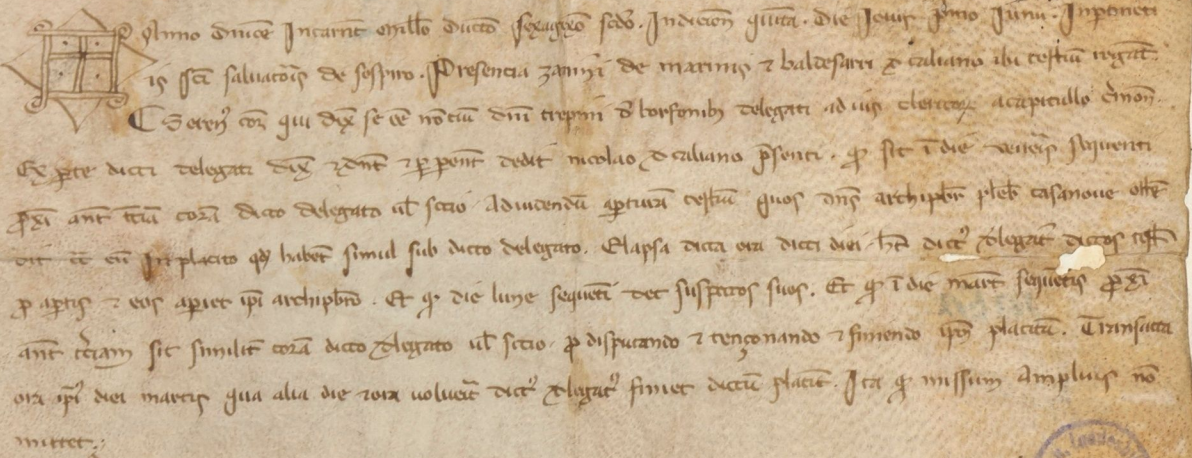 Añno dñice Incarñt millo ducto sexagexo scdo. Indicioñ quinta. die Iouis primo Iunii. In preseñti
is sci saluatoris de sospiro. Presencia zanini de marinis & baldesarri de caliano ibi testiū rogat.
Gerenꝰ coꝝ qui dix se eē nōtiū dñi trepini delegati ad uis clericoꝝ
Ex parte dicti delegati dix & dnt & p pcept dedit nicolao de caliano psenti. qd sit ī die ueneris sequenti
pxi ant tciā corā dicto delegato ul socio. Aduidendū apturā testiū quos dns archipbr plebis casanoue
dit cū eū In placito qd habet simul sub dicto delegato. Elapsa dicta ora dicti diei hēt dictꝰ delegatꝰ dictos test
p aptis & eos apiet ipi archipbro. Et qd die lune sequeti det suspectos suos. Et qd ī die mart sequetis pxi
ant tciam sit similit corā dicto delegato ul socio. p disputando & tençonando & finiendo ipm placitū. Transacta
ora ipi diei martis qua alia die & ora uoluerit dictꝰ delegatꝰ finiet dictū placit. Ita qd missum Amplius nō
mittet.